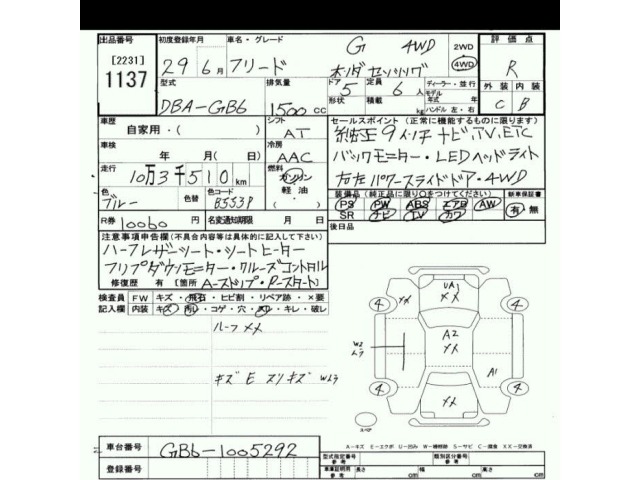 出品番号 初度登録年月 車名・グレード 2WD 評価点
[2231] 29年 6月 フリード G 4WD 4WD R
1137 ホンダセンシング
型式 排気量 ドア 定員 ディーラー・並行 外装 内装
DBA-GB6 1500cc 5 6人 モデル 年式 年 C B
形状 積載 kg ハンドル 左・右
車歴 自家用・( ) シフト AT セールスポイント(正常に機能するものに限ります)
純正9インチナビ,TV,ETC
車検 年 月(日) 冷房 AAC バックモニター・LEDヘッドライト
走行 10万3千510km 燃料 ガソリン 軽油 ( ) 左右パワースライドドア・4WD
色 ブルー 色替 色コード B553P 装備品(純正品に限り○をつけてください) 新車保証書
PS PW ABS エアB AW 有・無
R券 10060 名変通知期限 月 日 SR ナビ TV カワ
後日品
注意事項申告欄(不具合内容等は具体的に記入して下さい)
ハーフレザーシート・シートヒーター
フリップダウンモニター・クルーズコントロル
修復歴 有[箇所 A-ストップ・P-スタート]
検査員 FW キズ・飛石・ヒビ割・リペア跡・×要
記入欄 内装 キズ・汚レ・コゲ・穴・スレ・キレ・破レ
ルーフメメ
キズ E スリキズ Wムラ
4 メメ UA1 メメ 4
W2 ムラ A2 メメ A1
4 メメ 4
A-キズ E-エクボ U-凹み W-補修跡 S-サビ C-腐食 XX-交換済
車台番号 GB6-1005292 型式指定番号 参考 類別区分番号 参考
登録番号 車車証明用 参考 長さ cm 幅 cm 高さ cm